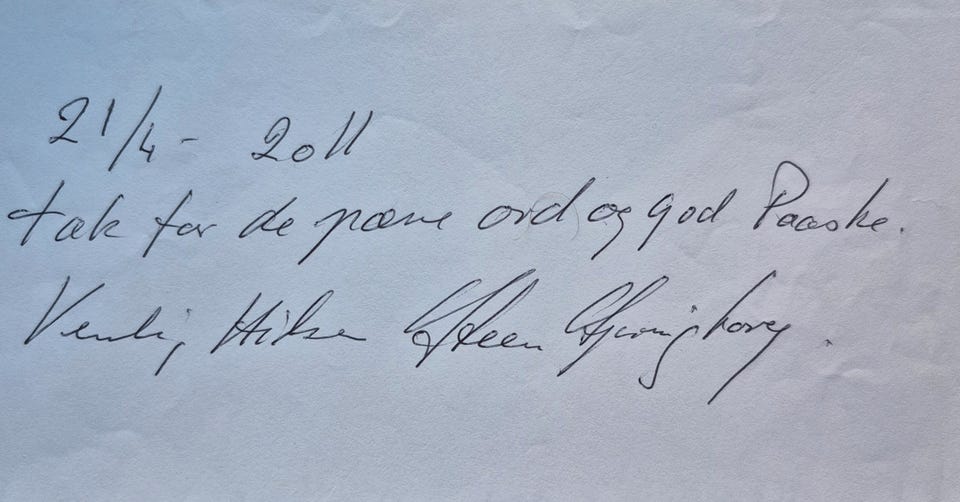 21/4 - 2011
tak for de pæne ord og god Paaske.
Venlig Hilsen Steen